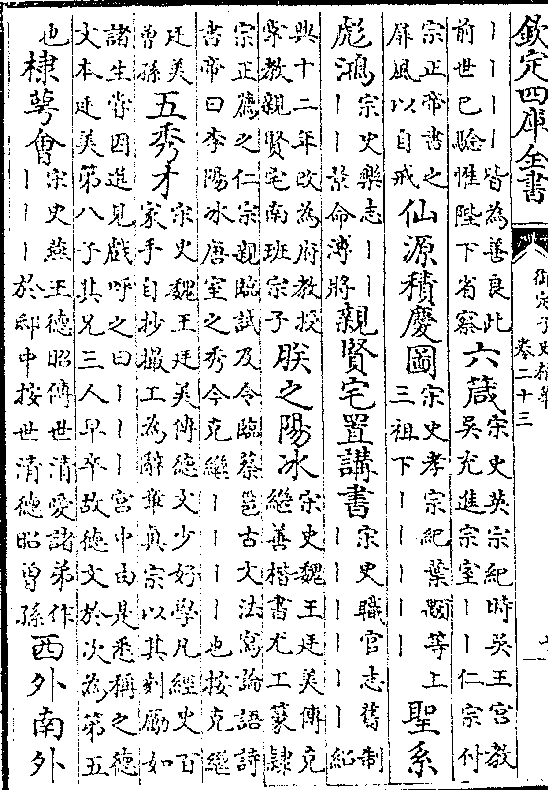 欽定四庫全書
御定子史精華
卷二十三
丨丨丨丨皆為善良此
前世已驗惟陛下省察
六箴
宋史英宗紀時吳王宮教
吳充進宗室丨丨仁宗付
宗正帝書之
屏風以自戒
仙源積慶圖
宋史孝宗紀葉顒等上
三祖下丨丨丨丨丨
聖系
彪鴻
宋史樂志丨丨
景命溥將
親賢宅置講書
宋史職官志舊制
丨丨丨丨丨丨紹
興十二年改為府教授
常教親賢宅南班宗子
朕之陽冰
宋史魏王廷美傳克
繼善楷書尤工篆隸
宗正薦之仁宗親臨試及令臨蔡邕古文法寫論語詩
書帝曰李陽冰唐室之秀今克繼丨丨丨丨也按克繼
廷美
曾孫
五秀才
宋史魏王廷美傳德文少好學凡經史百
家手自抄撮工為辭章真宗以其刻勵如
諸生嘗因進見戲呼之曰丨丨丨宮中由是悉稱之德
文本廷美第八子其兄三人早卒故德文於次為第五
也
棣萼會
宋史燕王德昭傳世清愛諸弟作
丨丨丨於邸中按世清德昭曾孫
西外南外